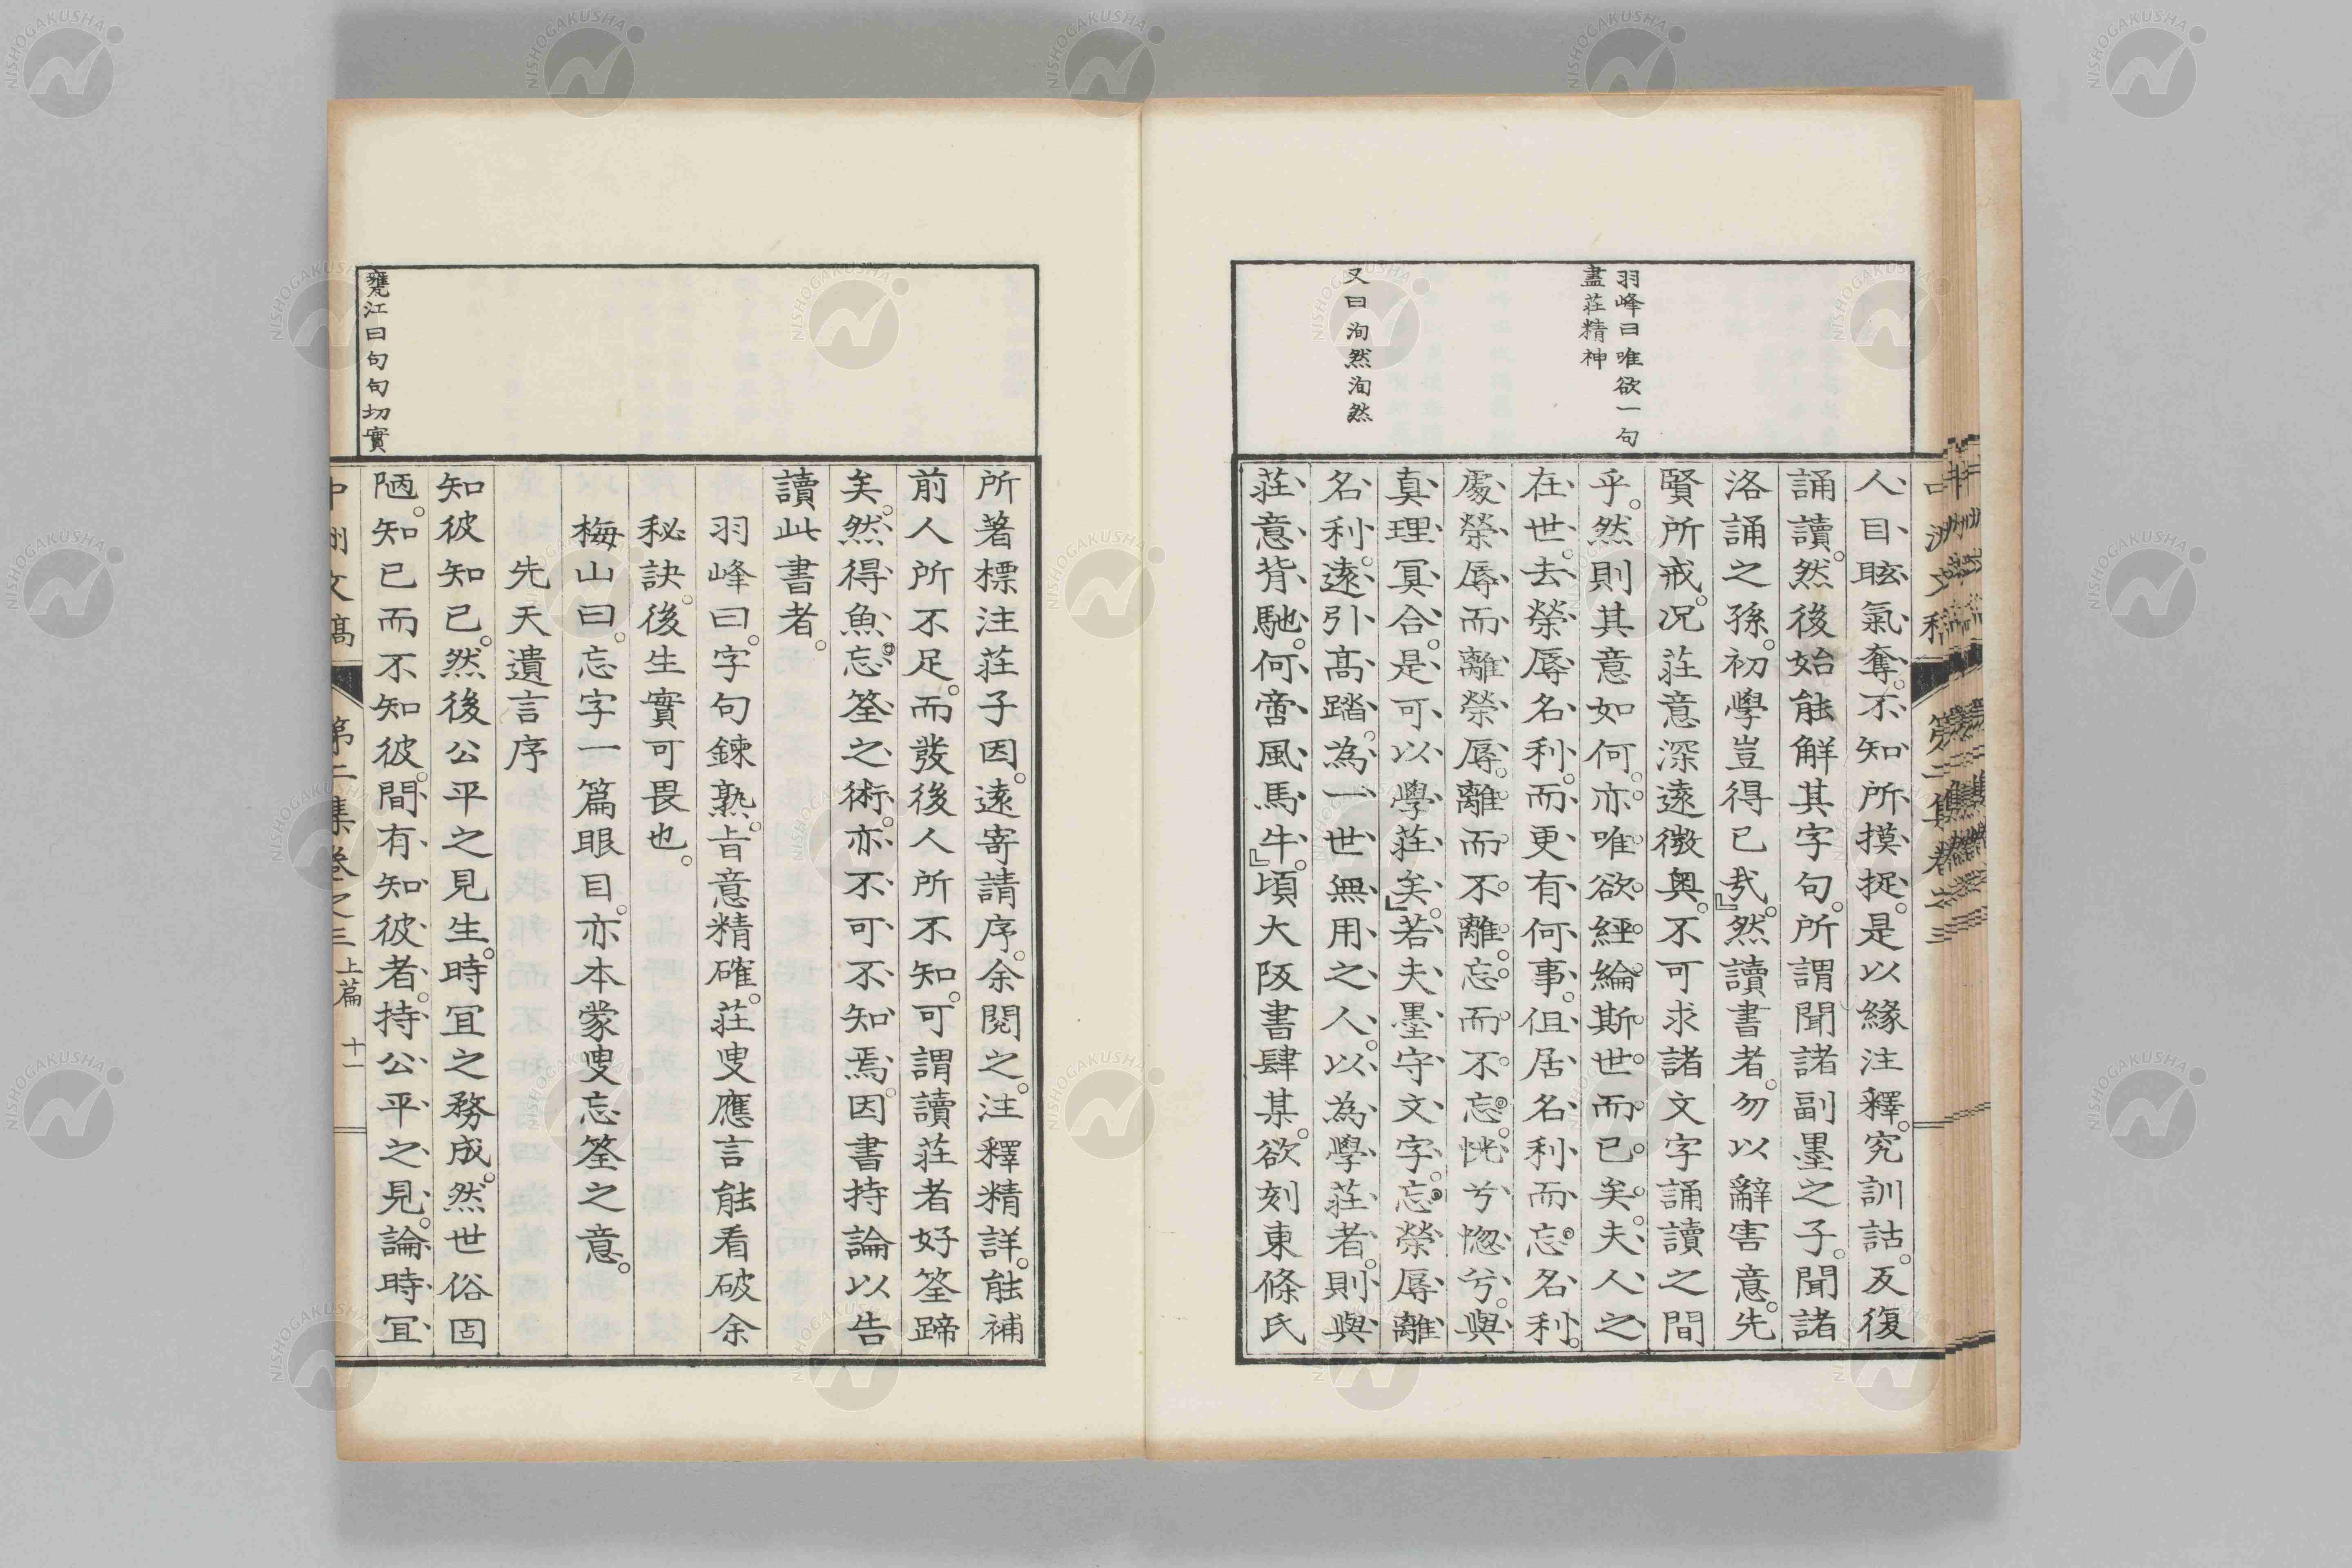 羽峰曰唯欲一句
盡莊精神
又曰洵然洵然
人目眩氣奪。不知所摸捉。是以緣注釋。究訓詁。反復
誦讀。然後始能解其字句。所謂聞諸副墨之子。聞諸
洛誦之孫。初學豈得已哉。』然讀書者。勿以辭害意。先
賢所戒。况莊意深遠微奧。不可求諸文字誦讀之間
乎。然則其意如何。亦唯欲經綸斯世而已矣。夫人之
在世。去榮辱名利。而更有何事。但居名利而忘名利。
處榮辱而離榮辱。離而不離。忘而不忘。恍兮惚兮。與
真理冥合。是可以學莊矣。』若夫墨守文字。忘榮辱離
名利。遠引高踏。為一世無用之人。以為學莊者。則與
莊意背馳。何啻風馬牛。』頃大阪書肆某。欲刻東條氏
甕江曰句句切實
所著標注莊子因。遠寄請序。余閱之。注釋精詳。能補
前人所不足。而發後人所不知。可謂讀莊者好筌蹄
矣。然得魚忘筌之術。亦不可不知焉。因書持論以告
讀此書者。
羽峰曰。字句鍊熟。旨意精確。莊叟應言能看破余
秘訣。後生實可畏也。
梅山曰。忘字一篇眼目。亦本蒙叟忘筌之意。
先天遺言序
知彼知己。然後公平之見生。時宜之務成。然世俗固
陋。知己而不知彼。間有知彼者。持公平之見。論時宜
中洲文稿 第二集卷之三 上篇 十一
NISHOGAKUSHA